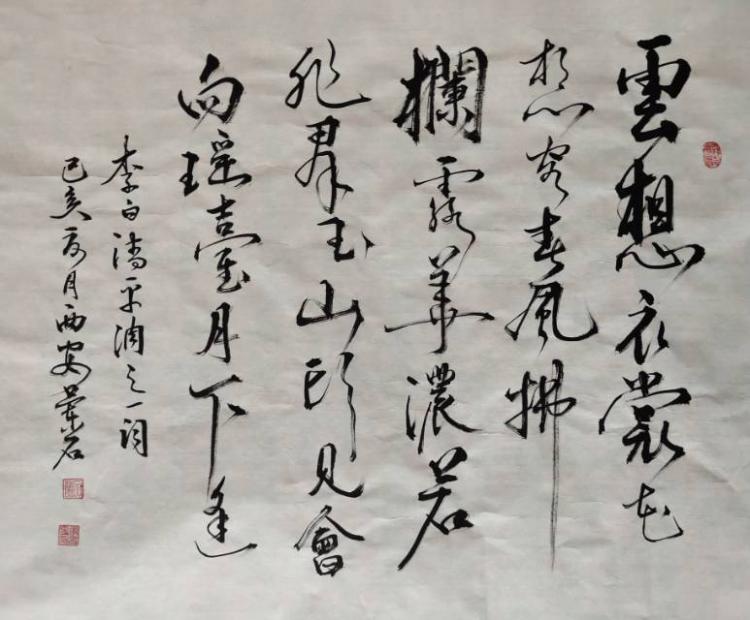 雲想衣裳花
想容春風拂
欄露華濃若
非羣玉山頭見會
向瑶臺月下逢
李白清平調之一詞
己亥夏月西安石